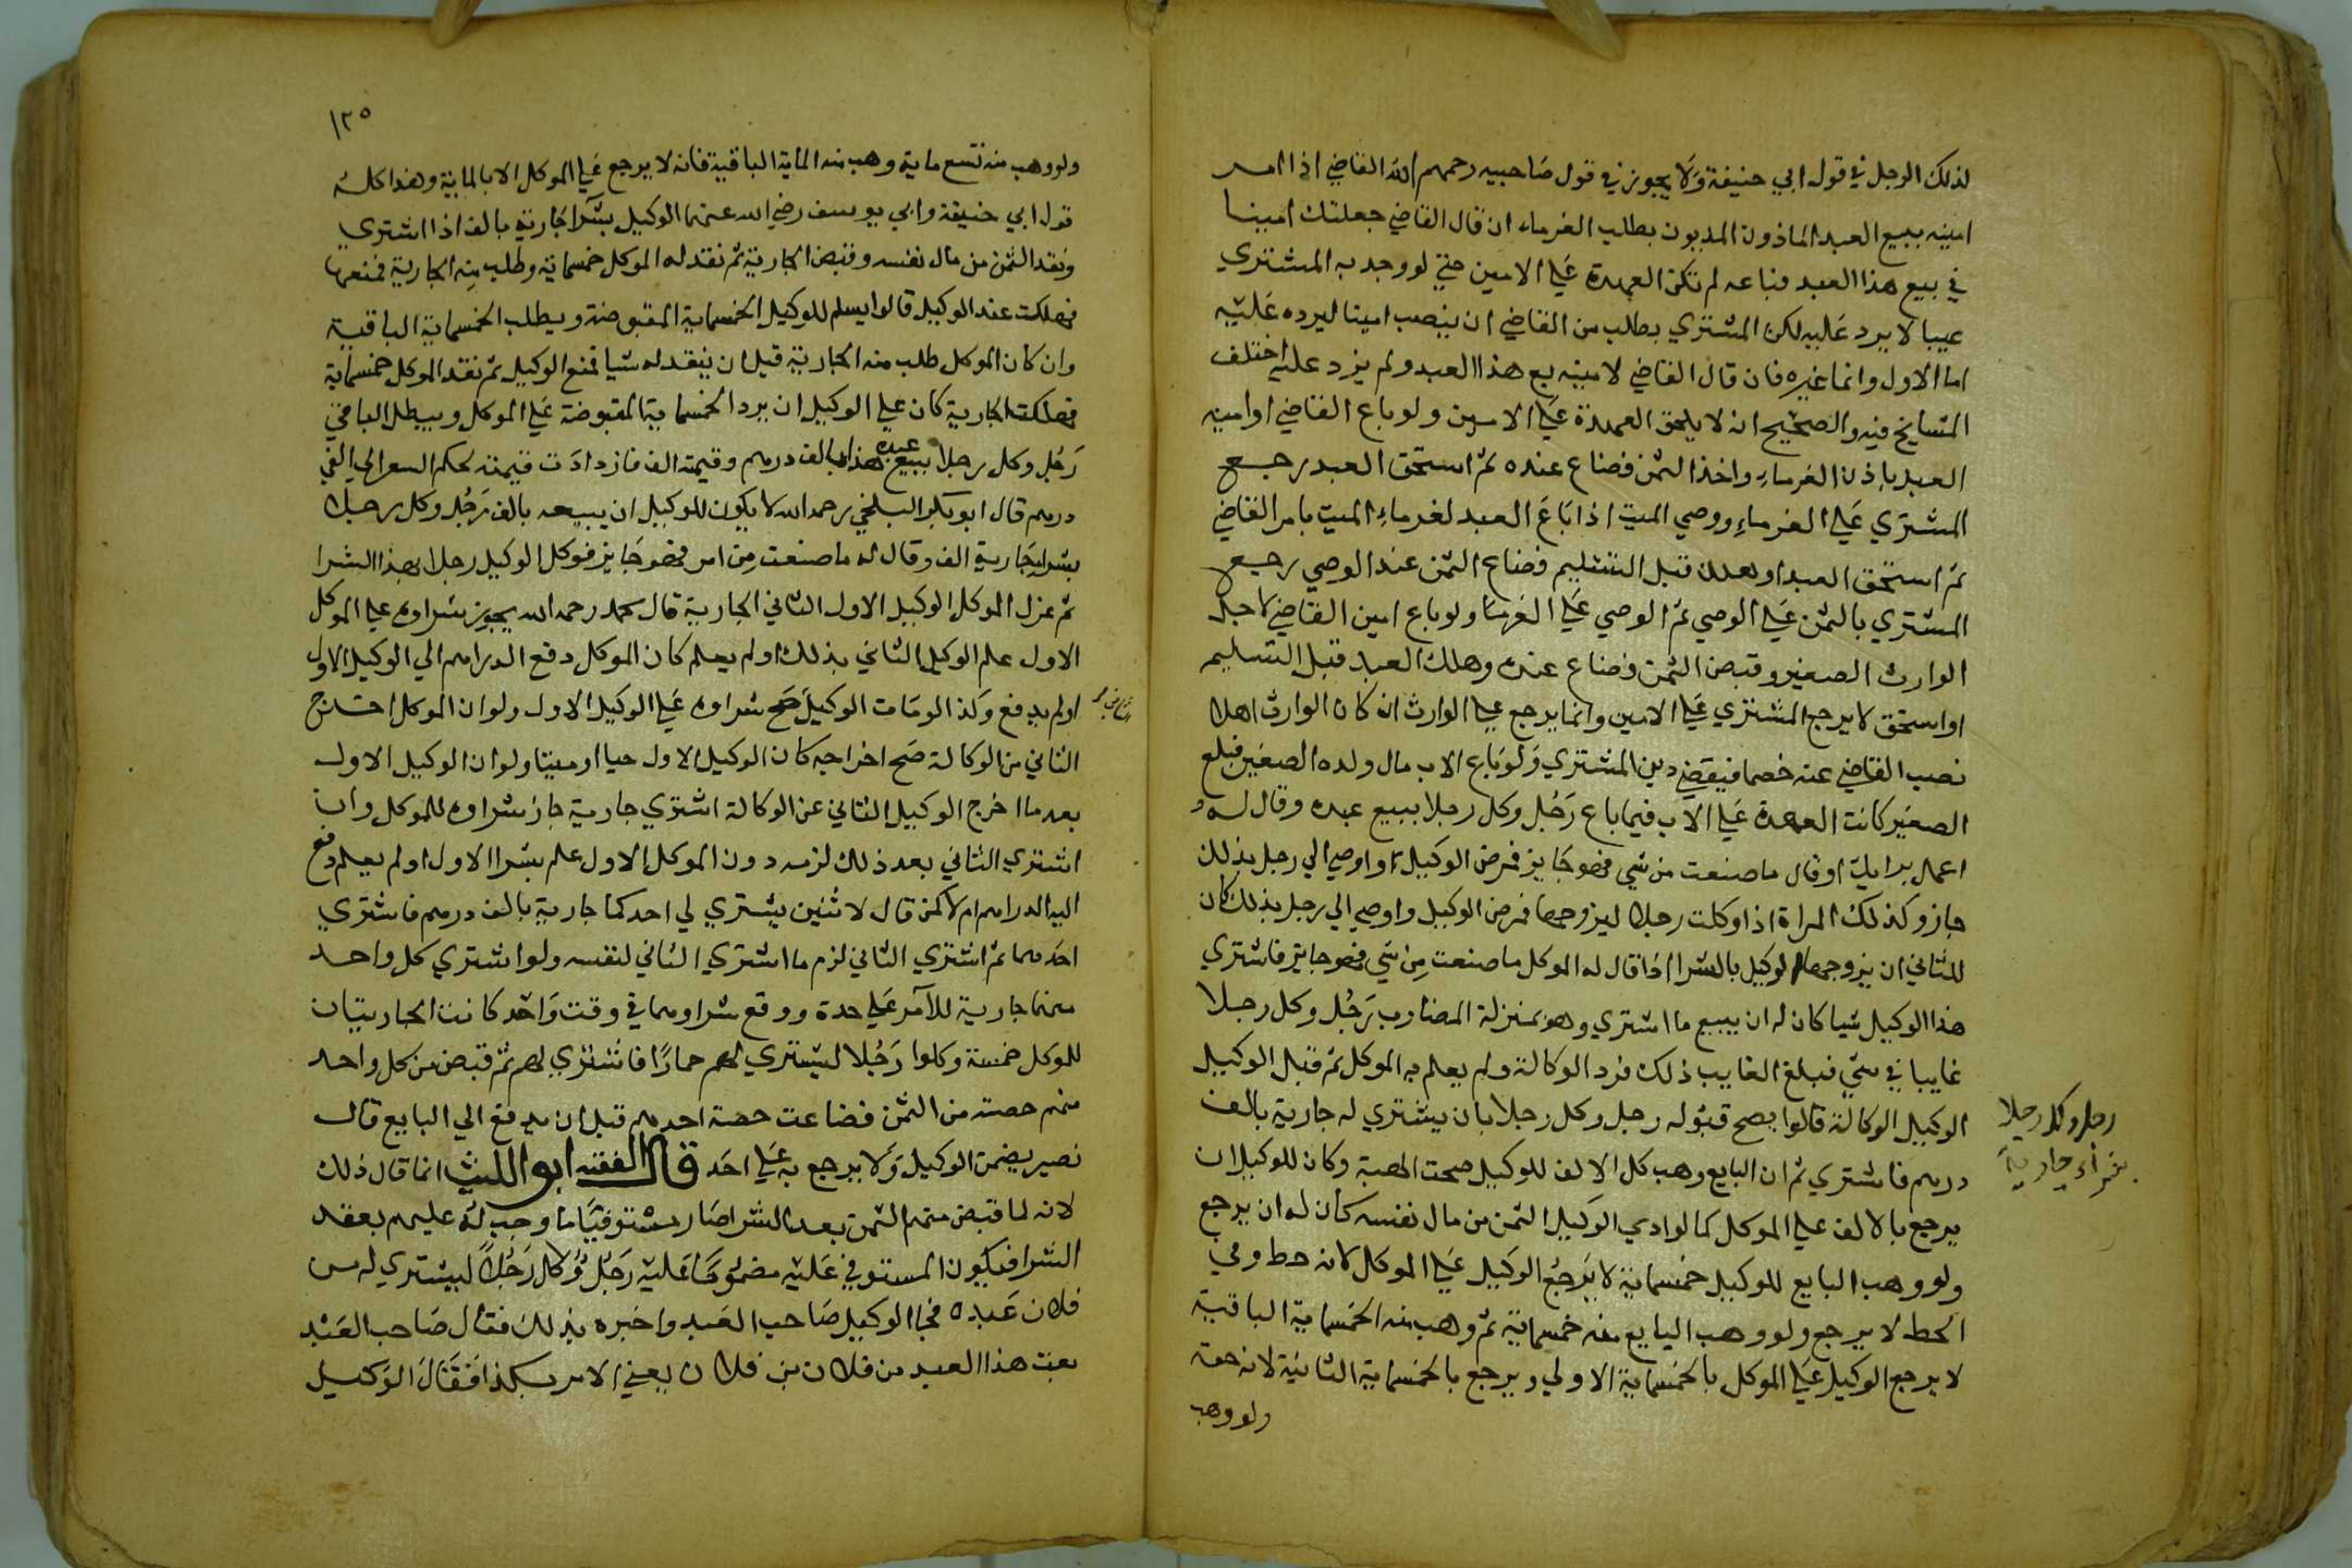 لذلك الوجل في قول ابي حنيفة ولا يجوز في قول صاحبيه رحمهم الله القاضي اذا امر
امينه ببيع العبد الماذون المديون بطلب الغرماء ان قال القاضي جعلتك امينا
في بيع هذا العبد فباعه لم تكن العهدة علي الامين حتي لو وجد به المشتري
عيبا لا يرد عليه لكن المشتري يطلب من القاضي ان ينصب امينا ليرده عليه
اما الاول وانما غيره فان قال القاضي لامينه بع هذا العبد ولم يزد عليه اختلف
المشايخ فيه والصحيح انه لا يلحق العهدة علي الامين ولو باع القاضي او امينه
العبد باذن الغرماء واخذ الثمن فضاع عنده ثم استحق العبد رجع
المشتري علي الغرماء ووصي الميت اذا باع العبد لغرماء الميت بامر القاضي
ثم استحق العبد او هلك قبل التسليم فضاع الثمن عند الوصي رجع
المشتري بالثمن علي الوصي ثم الوصي علي الغرما ولو باع امين القاضي لاجل
الوارث الصغير وقبض الثمن فضاع عنده وهلك العبد قبل التسليم
او استحق لا يرجع المشتري علي الامين وانما يرجع علي الوارث ان كان الوارث اهلا
نصب القاضي عنه خصما فيقضي دين المشتري ولو باع الاب مال ولده الصغير فبلغ
الصغير كانت العهدة علي الاب فيما باع رجل وكل رجلا ببيع عبده وقال له
اعمل برايك او قال ما صنعت من شي فهو جايز فمرض الوكيل او اوصي الي رجل بذلك
جاز وكذلك المراة اذا وكلت رجلا ليزوجها فمرض الوكيل واوصي الي رجل بذلك كان
للثاني ان يزوجها الوكيل بالشرا اذا قال له الموكل ما صنعت من شي فهو جايز فاشتري
هذا الوكيل شيا كان له ان يبيع ما اشتري وهو بمنزلة المضارب رجل وكل رجلا
غايبا في شي فبلغ الغايب ذلك فرد الوكالة ولم يعلم به الموكل ثم قبل الوكيل
الوكيل الوكالة قالوا يصح قبوله رجل وكل رجلا بان يشتري له جارية بالف
رجل وكل رجلا
بشراء جارية
درهم فاشتري ثم ان البايع وهب كل الالف للوكيل صحت الهبة وكان للوكيل ان
يرجع بالالف علي الموكل كما لو ادي الوكيل الثمن من مال نفسه كان له ان يرجع
ولو وهب البايع للوكيل خمسماية لا يرجع الوكيل علي الموكل لانه حط وفي
الحط لا يرجع ولو وهب البايع منه خمسماية ثم وهب منه الخمسماية الباقية
لا يرجع الوكيل علي الموكل بالخمسماية الاولي ويرجع بالخمسماية الثانية لانه حقه
ولو وهب
١٣٥
ولو وهب منه تسع ماية وهب منه الماية الباقية فانه لا يرجع علي الموكل الا بالماية وهذا كله
قول ابي حنيفة وابي يوسف رضي الله عنهما الوكيل بشرا جارية بالف اذا اشتري
ونقد الثمن من مال نفسه وقبض الجارية ثم نقد له الموكل خمسماية وطلب منه الجارية فمنعها
فهلكت عند الوكيل قالوا يسلم للوكيل الخمسماية المقبوضة ويطلب الخمسماية الباقية
وان كان الموكل طلب منه الجارية قبل ان ينقد له شيا فمنع الوكيل ثم نقد الموكل خمسماية
فهلكت الجارية كان علي الوكيل ان يرد الخمسماية المقبوضة علي الموكل ويبطل الباقي
رجل وكل رجلا ببيع عبده هذا بالف درهم وقيمته الف فازدادت قيمته بحكم السعر الي الفي
درهم قال ابو بكر البلخي رحمه الله لا يكون للوكيل ان يبيعه بالف رجل وكل رجلا
بشرا جارية الف وقال له ما صنعت من امر فهو جايز فوكل الوكيل رجلا بهذا الشرا
ثم عزل الموكل الوكيل الاول الثاني الجارية قال محمد رحمه الله يجوز شراوه علي الموكل
الاول علم الوكيل الثاني بذلك او لم يعلم كان الموكل دفع الدراهم الي الوكيل الاول
او لم يدفع وكذا لو مات الوكيل صح شراوه علي الوكيل الاول ولو ان الموكل اخرج
الثاني من الوكالة صح اخراجه كان الوكيل الاول حيا او ميتا ولو ان الوكيل الاول
بعد ما اخرج الوكيل الثاني عن الوكالة اشتري جارية جاز شراوه للموكل وان
اشتري الثاني بعد ذلك لزمه دون الموكل الاول علم بشرا الاول او لم يعلم دفع
اليه الدراهم ام لا كمن قال لاثنين يشتري لي احدكما جارية بالف درهم فاشتري
احدهما ثم اشتري الثاني لزم ما اشتري الثاني لنفسه ولو اشتري كل واحد
منهما جارية للآمر علي حدة ووقع شراوهما في وقت واحد كانت الجاريتان
للموكل خمسة وكلوا رجلا ليشتري لهم حمارا فاشتري لهم ثم قبض من كل واحد
منهم حصته من الثمن فضاعت حصة احدهم قبل ان يدفع الي البايع قال
نصير يضمن الوكيل ولا يرجع به علي احد قال الفقيه ابو الليث انما قال ذلك
لانه لما قبض منهم الثمن بعد الشرا صار مستوفيا ما وجب له عليهم بعقد
الشرا فيكون المستوفي عليه مضمونا عليه رجل وكل رجلا ليشتري له من
فلان عبده فجا الوكيل صاحب العبد واخبره بذلك فقال صاحب العبد
بعت هذا العبد من فلان بن فلان يعني الامر بكذا فقال الوكيل